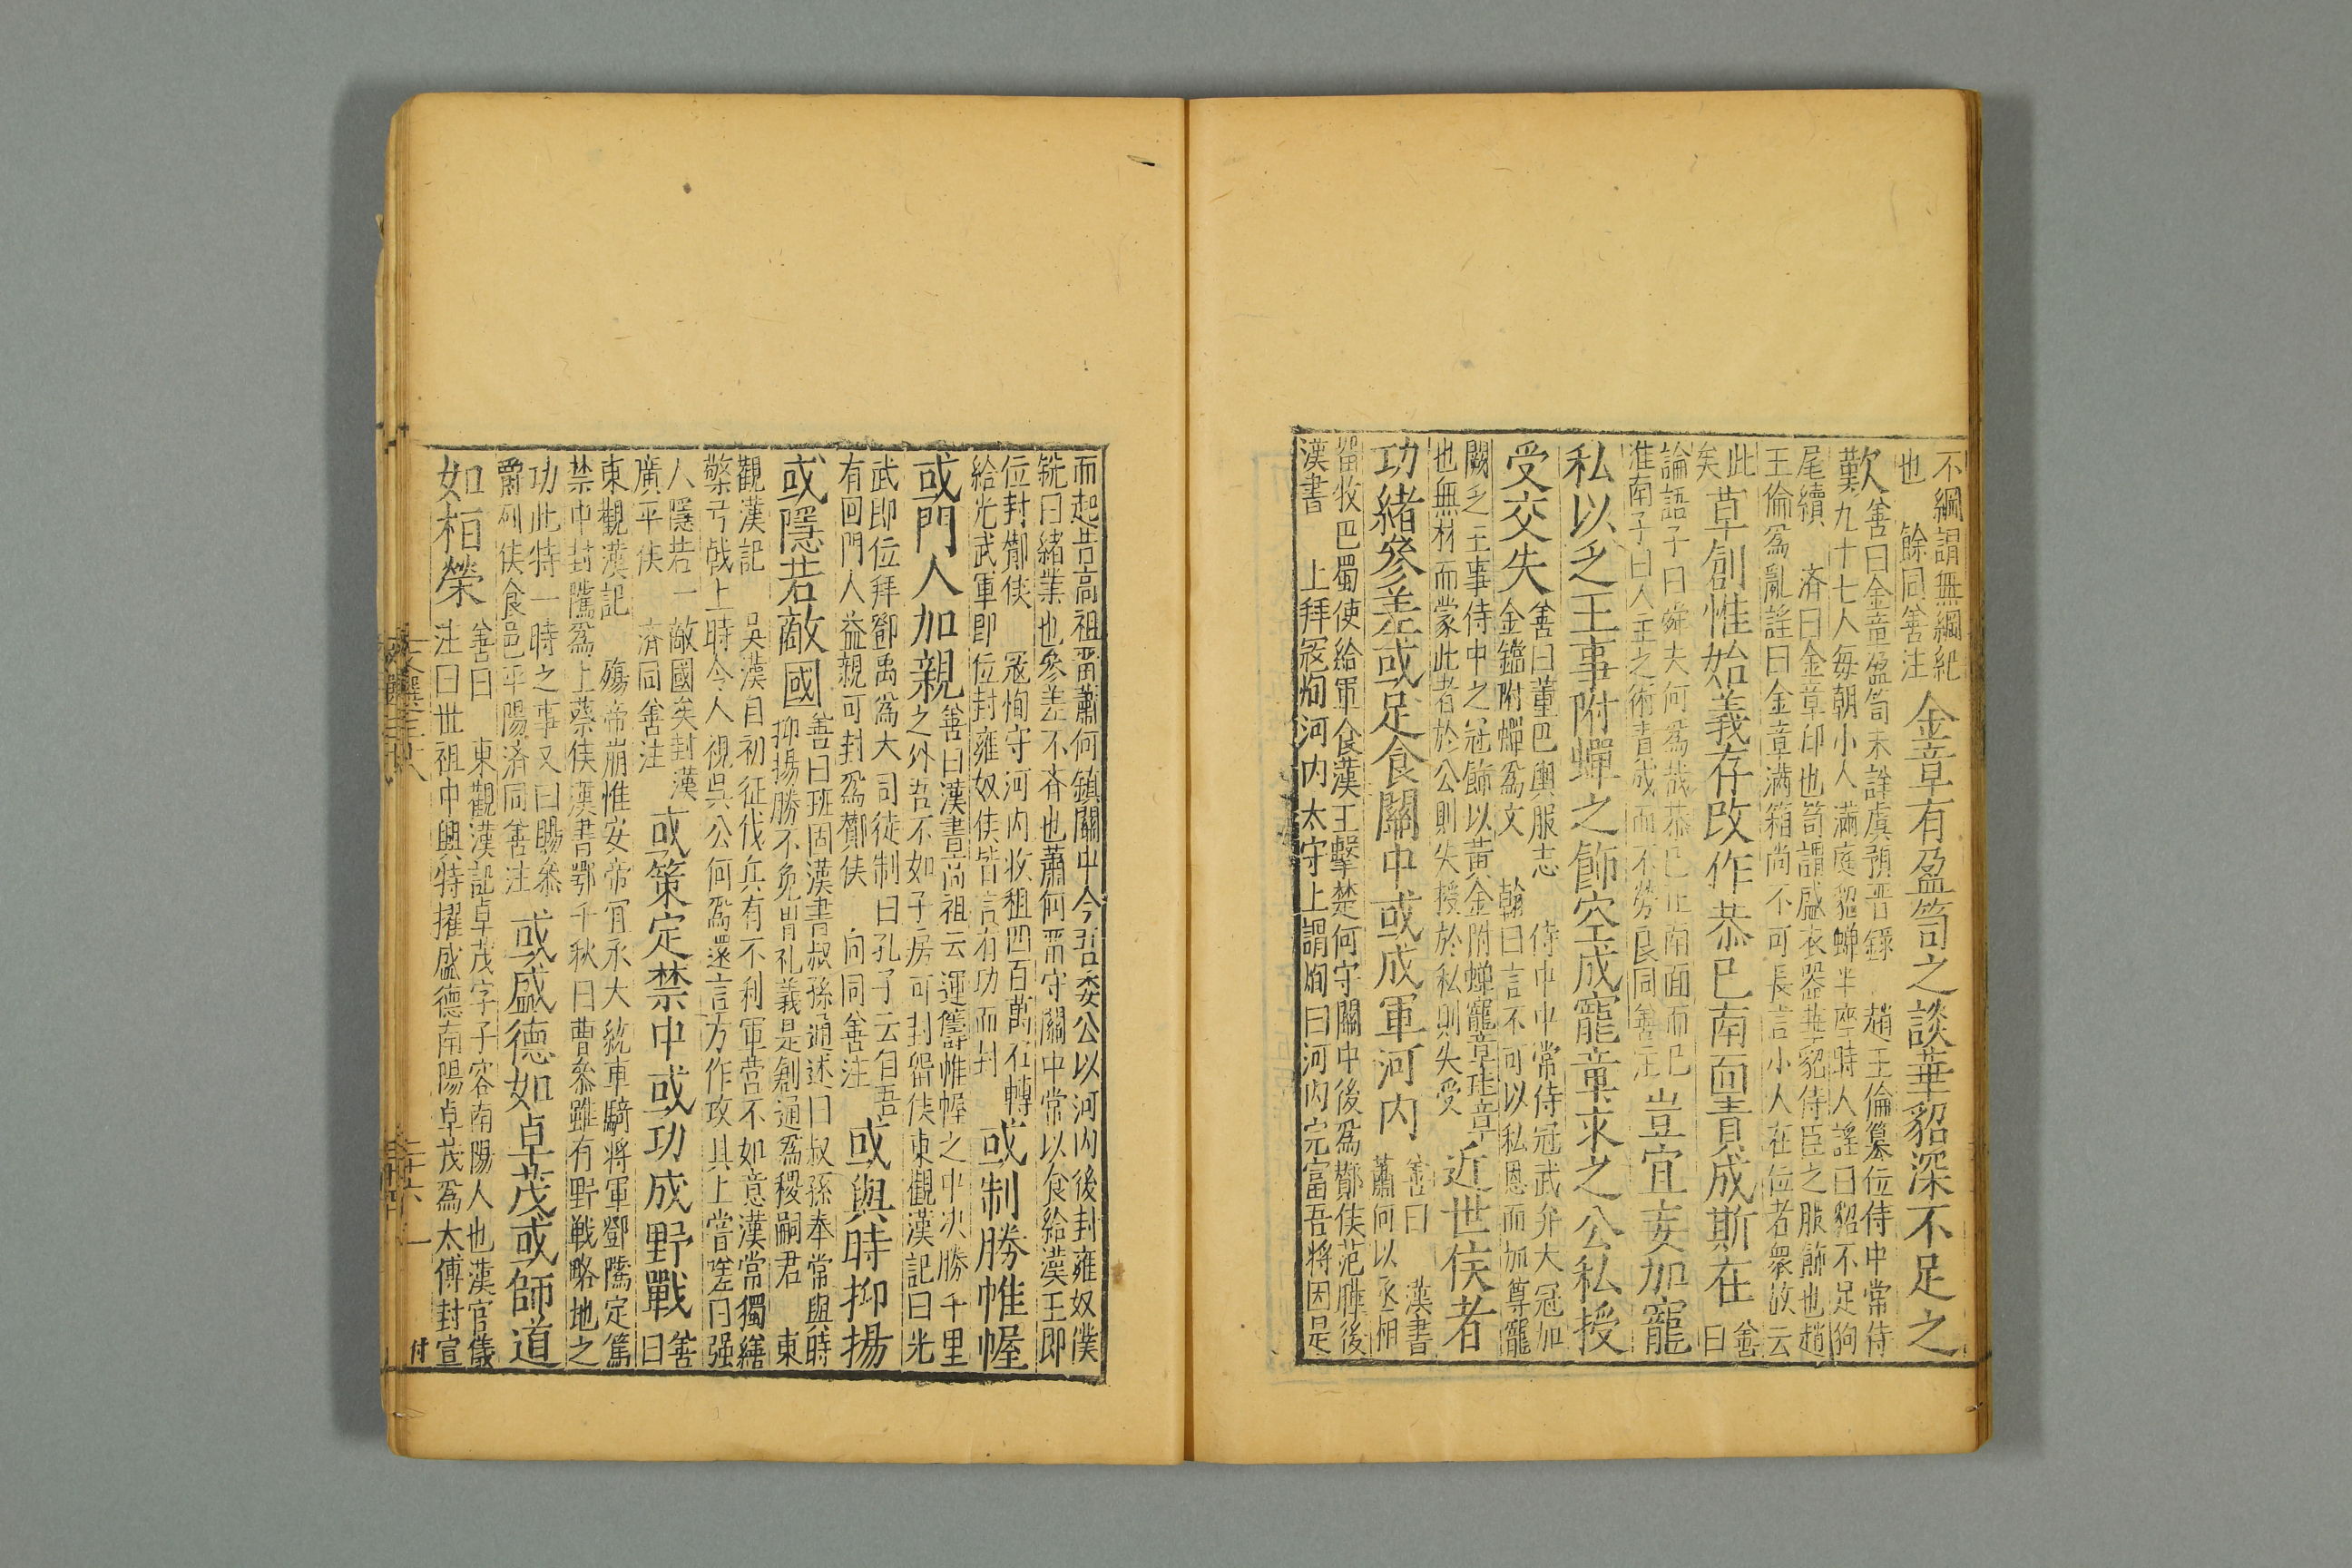 不綱謂無綱紀
也　餘同善注
金章有盈笥之談華貂深不足之
歎
善曰金章盈笥未詳虞預晉錄　趙王倫篡位侍中常侍
九十七人每朝小人滿庭貂蟬半座時人謠曰貂不足狗
尾續　濟曰金章印也笥謂盛衣器華貂侍臣之服飾也趙
王倫爲亂謡曰金章滿箱尚不可長言小人在位者衆故云
此
矣
草創惟始義存改作恭已南面責成斯在
善
曰
論語子曰舜夫何爲哉恭已正南面而已
淮南子曰人主之術責成而不勞良同善注
豈宜妄加寵
私以乏王事附蟬之飾空成寵章求之公私授
受交失
善曰董巴輿服志　侍中中常侍冠武弁大冠加
金鐺附蟬爲文　翰曰言不可以私恩而加尊寵
闕乏王事侍中之冠飾以黃金附蟬寵章珪章
也無材而蒙此者於公則失授於私則失受
近世侯者
功緒參差或足食關中或成軍河内
善曰　漢書
蕭何以丞相
留牧巴蜀使給軍食漢王擊楚何守關中後爲酇侯范曄後
漢書　上拜寇恂河内太守上謂恂曰河内完富吾將因是
而起昔高祖留蕭何鎮關中今吾委公以河内後封雍奴僕
銑曰緒業也參差不齊也蕭何留守關中常以食給漢王即
位封酇侯　寇恂守河内收租四百萬石轉
給光武軍即位封雍奴侯皆言有功而封
或制勝帷幄
或門人加親
善曰漢書高祖云運籌帷幄之中决勝千里
之外吾不如子房可封留侯東觀漢記曰光
武即位拜鄧禹爲大司徒制曰孔子云自吾
有回門人益親可封爲酇侯　向同善注
或與時抑揚
或隱若敵國
善曰班固漢書叔孫通述曰叔孫奉常與時
抑揚勝不免冑礼義是創通爲稷嗣君　東
觀漢記　吳漢自初征伐兵有不利軍營不如意漢常獨繕
檠弓戟上時令人視吳公何爲還言方作攻具上常嗟曰强
人隱若一敵國矣封漢
廣平侯　濟同善注
或策定禁中或功成野戰
善
曰
東觀漢記　殤帝崩惟安帝宜承大統車騎將軍鄧隲定䇿
禁中封隲爲上蔡侯漢書鄂千秋曰曹參雖有野戰略地之
功此特一時之事又曰賜參
爵列侯食邑平陽濟同善注
或盛德如卓茂或師道
如桓榮
善曰　東觀漢記卓茂字子容南陽人也漢官儀
注曰世祖中興特擢盛德南陽卓茂爲太傅封宣
付